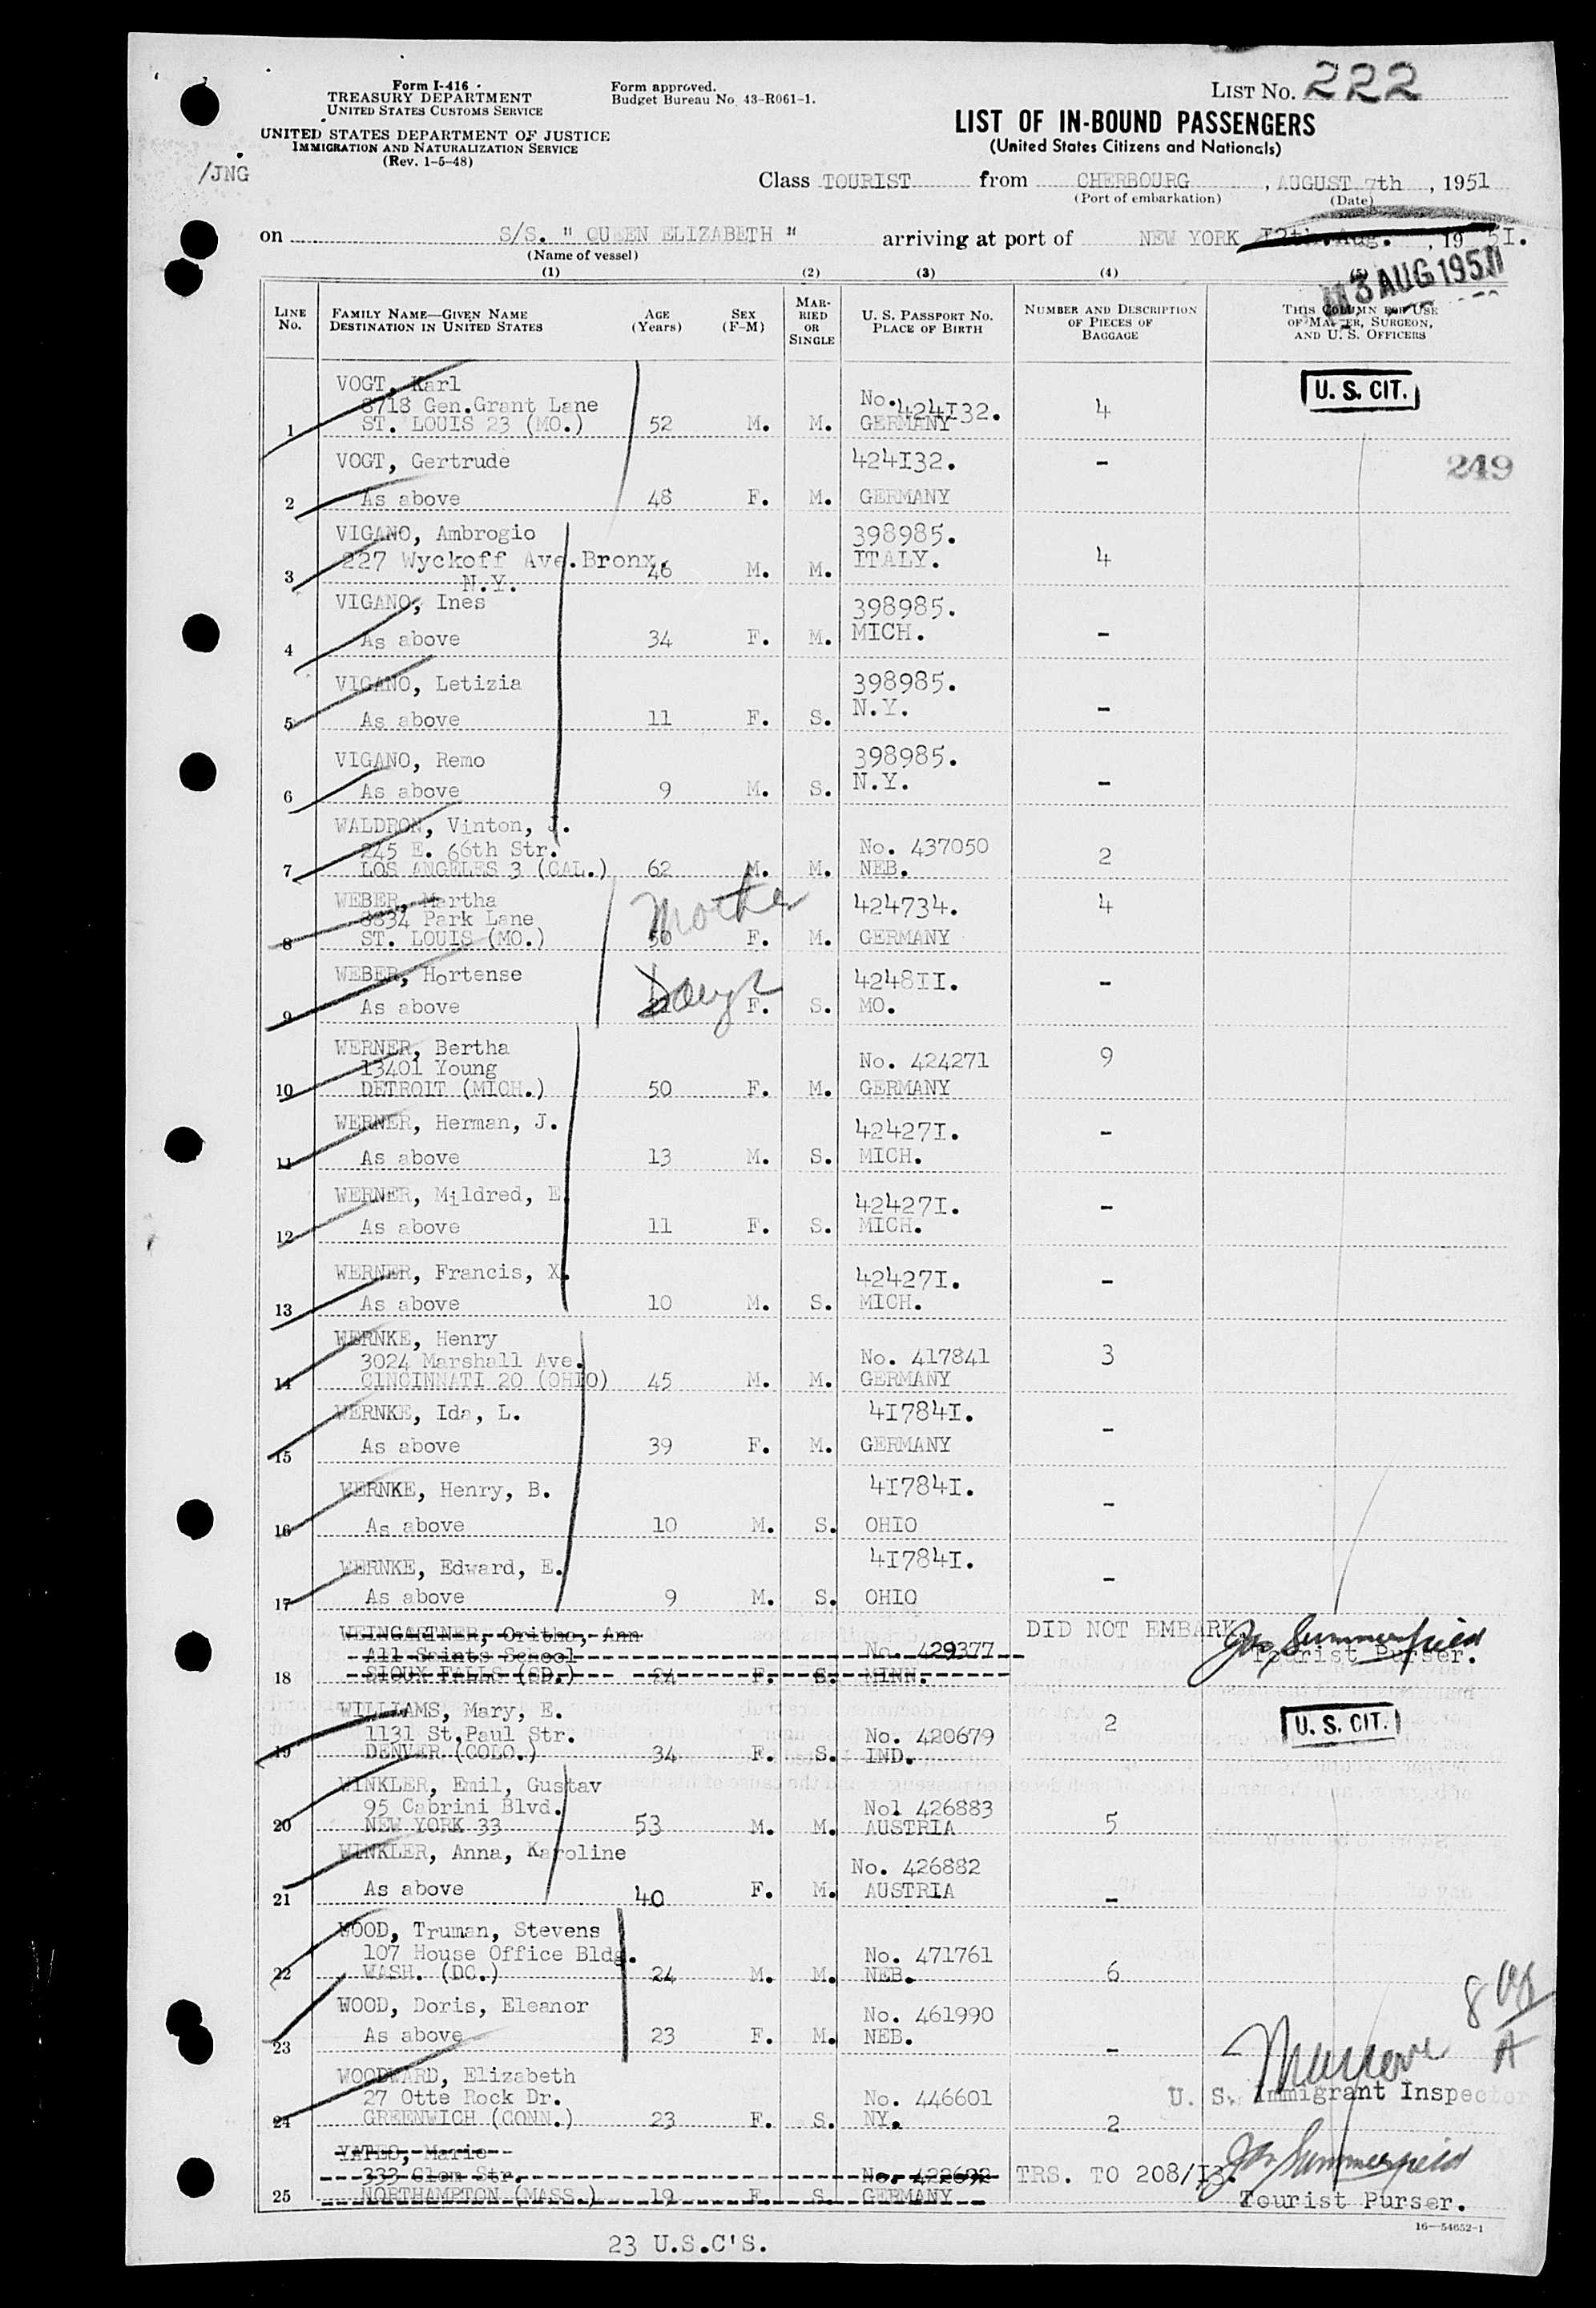 Form I-416
TREASURY DEPARTMENT
UNITED STATES CUSTOMS SERVICE
UNITED STATES DEPARTMENT OF JUSTICE
IMMIGRATION AND NATURALIZATION SERVICE
(Rev. 1-5-48)
/JNG
Form approved.
Budget Bureau No. 43-R061-1.
LIST NO. 222
LIST OF IN-BOUND PASSENGERS
(United States Citizens and Nationals)
Class TOURIST from CHERBOURG, AUGUST 7th, 1951
(Port of embarkation) (Date)
on S/S. " QUEEN ELIZABETH " arriving at port of NEW YORK 12th. Aug. , 19 5I.
(Name of vessel)
3 AUG 195
(1) (2) (3) (4) (5)
LINE NO. FAMILY NAME—GIVEN NAME DESTINATION IN UNITED STATES AGE (Years) SEX (F-M) MARRIED OR SINGLE U. S. PASSPORT NO. PLACE OF BIRTH NUMBER AND DESCRIPTION OF PIECES OF BAGGAGE THIS COLUMN FOR USE OF MASTER, SURGEON, AND U. S. OFFICERS
VOGT, Karl U. S. CIT.
8718 Gen.Grant Lane No. 424I32. 4
1 ST. LOUIS 23 (MO.) 52 M. M. GERMANY
VOGT, Gertrude 424I32. - 249
2 As above 48 F. M. GERMANY
VIGANO, Ambrogio 398985.
227 Wyckoff Ave.Bronx. ITALY. 4
3 N.Y. 46 M. M.
VIGANO, Ines 398985.
4 As above 34 F. M. MICH. -
VIGANO, Letizia 398985.
5 As above 11 F. S. N.Y. -
VIGANO, Remo 398985.
6 As above 9 M. S. N.Y. -
WALDRON, Vinton, J.
245 E. 66th Str. No. 437050 2
7 LOS ANGELES 3 (CAL.) 62 M. M. NEB.
WEBER, Martha Mother 424734. 4
8834 Park Lane
8 ST. LOUIS (MO.) 50 F. M. GERMANY
WEBER, Hortense Daugh 4248II. -
9 As above F. S. MO.
WERNER, Bertha 9
13401 Young No. 424271
10 DETROIT (MICH.) 50 F. M. GERMANY
WERNER, Herman, J. 42427I. -
11 As above 13 M. S. MICH.
WERNER, Mildred, E. 42427I. -
12 As above 11 F. S. MICH.
WERNER, Francis, X. 42427I. -
13 As above 10 M. S. MICH.
WERNKE, Henry
3024 Marshall Ave. No. 417841 3
14 CINCINNATI 20 (OHIO) 45 M. M. GERMANY
WERNKE, Ida, L. 4I784I.
15 As above 39 F. M. GERMANY -
WERNKE, Henry, B. 4I784I.
16 As above 10 M. S. OHIO -
WERNKE, Edward, E. 4I784I.
17 As above 9 M. S. OHIO -
WEINGARTNER, Oritha, Ann DID NOT EMBARK. Jas Summerfield
All Saints School No. 429377 Tourist Purser.
18 SIOUX FALLS (SD.) 24 F. S. MINN.
WILLIAMS, Mary, E. 2 U. S. CIT.
1131 St.Paul Str. No. 420679
19 DENVER (COLO.) 34 F. S. IND.
WINKLER, Emil, Gustav
95 Cabrini Blvd. Nol 426883
20 NEW YORK 33 53 M. M. AUSTRIA 5
WINKLER, Anna, Karoline No. 426882
21 As above 40 F. M. AUSTRIA -
WOOD, Truman, Stevens
107 House Office Bldg. No. 471761
22 WASH. (DC.) 24 M. M. NEB. 6
WOOD, Doris, Eleanor No. 461990
23 As above 23 F. M. NEB. -
WOODWARD, Elizabeth
27 Otte Rock Dr. No. 446601 U. S. Immigrant Inspector
24 GREENWICH (CONN.) 23 F. S. NY. 2
YATES, Marie Jas Summerfield
333 Elom Str. No. 422692 TRS. TO 208/I3.
25 NORTHAMPTON (MASS.) 19 F. S. GERMANY Tourist Purser.
16—54652-1
23 U.S.C'S.